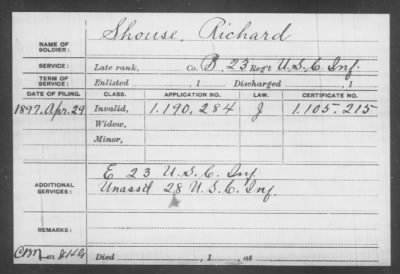 NAME OF SOLDIER: Shouse, Richard
SERVICE: Late rank, Co. B, 23 Reg't U.S.C. Inf.
TERM OF SERVICE: Enlisted , 1 Discharged , 1
DATE OF FILING. CLASS. APPLICATION NO. LAW. CERTIFICATE NO.
1897, Apr. 29 Invalid, 1.190,284 J 1.105.215
Widow,
Minor,
ADDITIONAL SERVICES: E 23 U.S.C. Inf
Unass'd 28 U.S.C. Inf
REMARKS:
Died , 1 , at